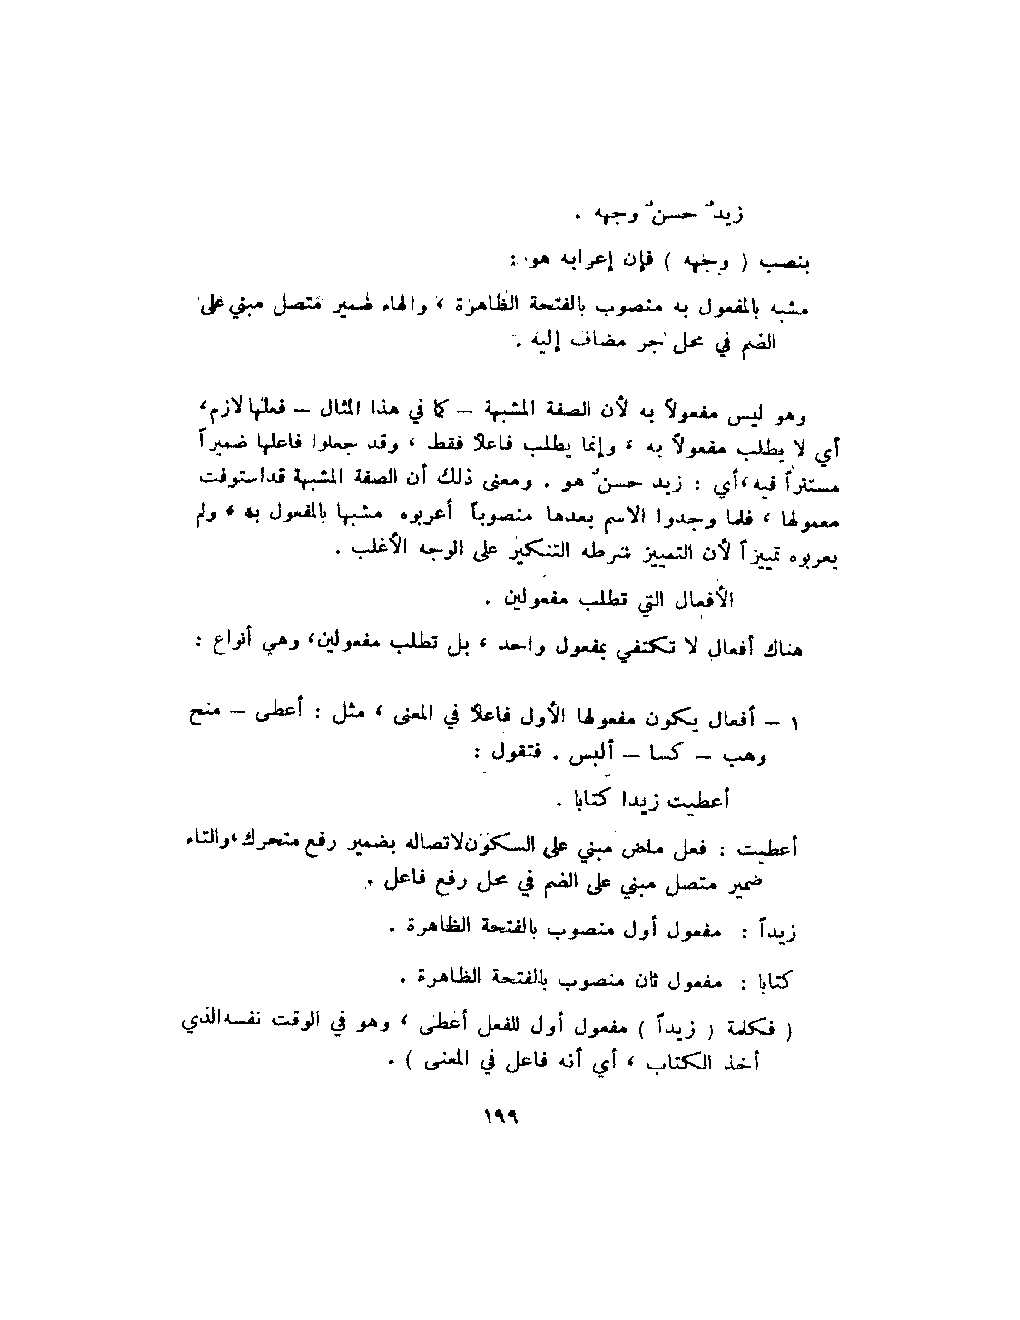 زيدٌ حسنٌ وجهه .
بنصب ( وجهه ) فإن إعرابه هو :
مشبه بالمفعول به منصوب بالفتحة الظاهرة ، والهاء ضمير متصل مبني على
الضم في محل جر مضاف إليه .
وهو ليس مفعولاً به لأن الصفة المشبهة – كما في هذا المثال – فعلها لازم،
أي لا يطلب مفعولاً به ، وإنما يطلب فاعلاً فقط ، وقد جعلوا فاعلها ضميراً
مستتراً فيه ، أي : زيد حسنٌ هو . ومعنى ذلك أن الصفة المشبهة قد استوفت
معمولها ، فلما وجدوا الاسم بعدها منصوباً أعربوه مشبها بالمفعول به ، ولم
يعربوه تمييزاً لأن التمييز شرطه التنكير على الوجه الأغلب .
الأفعال التي تطلب مفعولين .
هناك أفعال لا تكتفي بمفعول واحد ، بل تطلب مفعولين، وهي أنواع :
١ – أفعال يكون مفعولها الأول فاعلاً في المعنى ، مثل : أعطى – منح
وهب – كسا – ألبس . فتقول :
أعطيت زيدا كتابا .
أعطيت : فعل ماض مبني على السكون لاتصاله بضمير رفع متحرك، والتاء
ضمير متصل مبني على الضم في محل رفع فاعل .
زيداً : مفعول أول منصوب بالفتحة الظاهرة .
كتابا : مفعول ثان منصوب بالفتحة الظاهرة .
( فكلمة ( زيداً ) مفعول أول للفعل أعطى ، وهو في الوقت نفسه الذي
أخذ الكتاب ، أي أنه فاعل في المعنى ) .
١٩٩